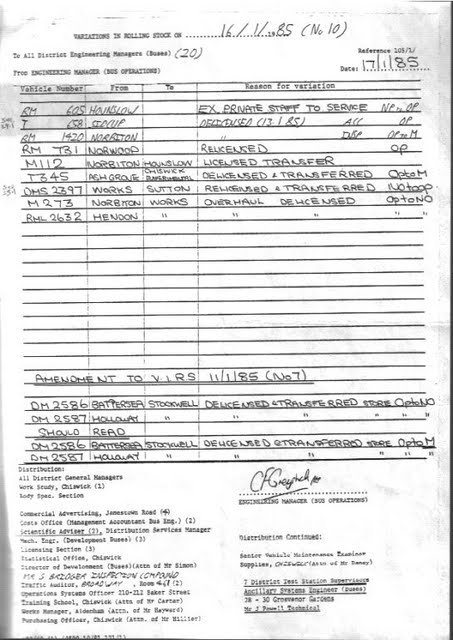 VARIATIONS IN ROLLING STOCK ON 16/1/1985 (No 10)
To All District Engineering Managers (Buses) (20)
Reference 105/1/
From ENGINEERING MANAGER (BUS OPERATIONS)
Date: 17/1/85
Vehicle Number From To Reason for variation
RM 605 HOUNSLOW EX PRIVATE STAFF TO SERVICE NP to OP
T 658 SIDCUP DELICENSED (13.1.85) ACC OP
RM 1420 NORBITON " DISP OP to M
RM 731 NORWOOD RELICENSED OP
M 112 NORBITON HOUNSLOW LICENSED TRANSFER
T 345 ASH GROVE CHISWICK EXPERIMENTAL DELICENSED & TRANSFERRED Op to M
DMS 2397 WORKS SUTTON RELICENSED & TRANSFERRED NO to OP
M 273 NORBITON WORKS OVERHAUL DELICENSED Op to NO
RML 2632 HENDON " " " "
AMENDMENT TO V.I.R.S 11/1/85 (No 7)
DM 2586 BATTERSEA STOCKWELL DELICENSED & TRANSFERRED STORE Op to NO
DM 2587 HOLLOWAY " " " " "
SHOULD READ
DM 2586 BATTERSEA STOCKWELL DELICENSED & TRANSFERRED STORE Op to M
DM 2587 HOLLOWAY " " " " "
Distribution:
All District General Managers
Work Study, Chiswick (1)
Body Spec. Section
ENGINEERING MANAGER (BUS OPERATIONS)
Commercial Advertising, Jamestown Road (4)
Costs Office (Management Accountant Bus Eng.) (2)
Scientific Adviser (2), Distribution Services Manager
Mech. Engr. (Development Buses) (3)
Licensing Section (3)
Statistical Office, Chiswick
Director of Development (Buses)(Attn of Mr Simon)
MR S BADGER INSPECTION COMPOUND
Traffic Auditor, BROADWAY, Room (2)
Operations Systems Officer 210-212 Baker Street
Training School, Chiswick (Attn of Mr Carter)
Works Manager, Aldenham (Attn. of Mr Hayward)
Purchasing Officer, Chiswick (Attn of Mr Hillier)
Distribution Continued:
Senior Vehicle Maintenance Examiner
Supplies, CHISWICK (Attn of Mr Daney)
7 District Test Station Supervisors
Ancillary Systems Engineer (Buses)
28 - 30 Grosvenor Gardens
Mr J Powell Technical